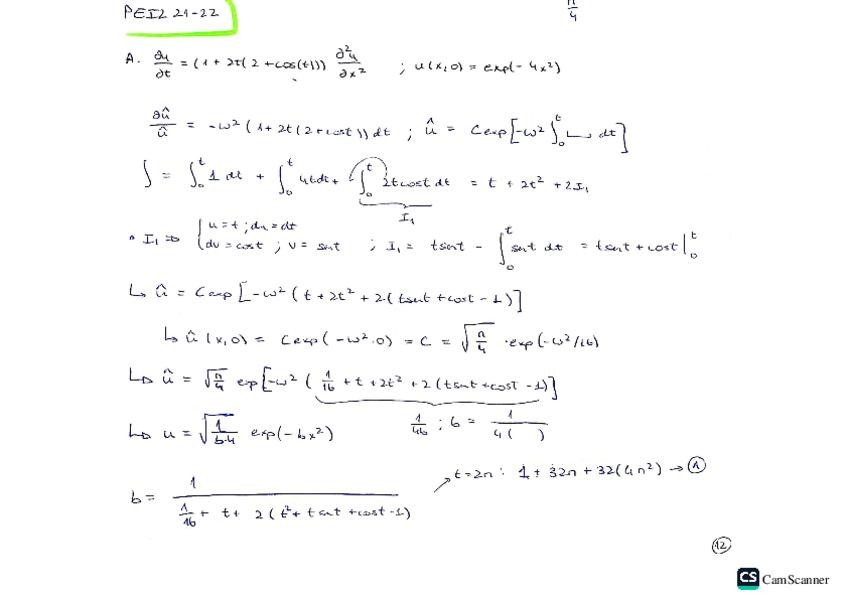 PEI2 21-22
π/4
A. ∂u/∂t = (1 + 2t(2 + cos(t))) ∂²u/∂x² ; u(x,0) = exp(-4x²)
∂û/û = -ω² (1 + 2t(2+cost)) dt ; û = C exp[-ω² ∫₀ᵗ ⌞⌟ dt]
∫ = ∫₀ᵗ 1 dt + ∫₀ᵗ 4t dt + ∫₀ᵗ 2t cost dt = t + 2t² + 2I₁
I₁
• I₁ => { u = t ; du = dt
dv = cost ; v = sint ; I₁ = t sint - ∫₀ᵗ sint dt = t sint + cost |₀ᵗ
↳ û = C exp[-ω² (t + 2t² + 2(t sint + cost - 1)]
↳ û(x,0) = C exp(-ω².0) = C = √(π/4) · exp(-ω²/16)
↳ û = √(π/4) exp[-ω² (1/16 + t + 2t² + 2(t sint + cost - 1)]
↳ u = √(1/(b·4)) exp(-bx²) 1/4b ; b = 1/(4( ))
b = 1/(1/16 + t + 2(t² + t sint + cost - 1)) t = 2π : 1 + 32π + 32(4π²) → Ⓐ
12
CS CamScanner